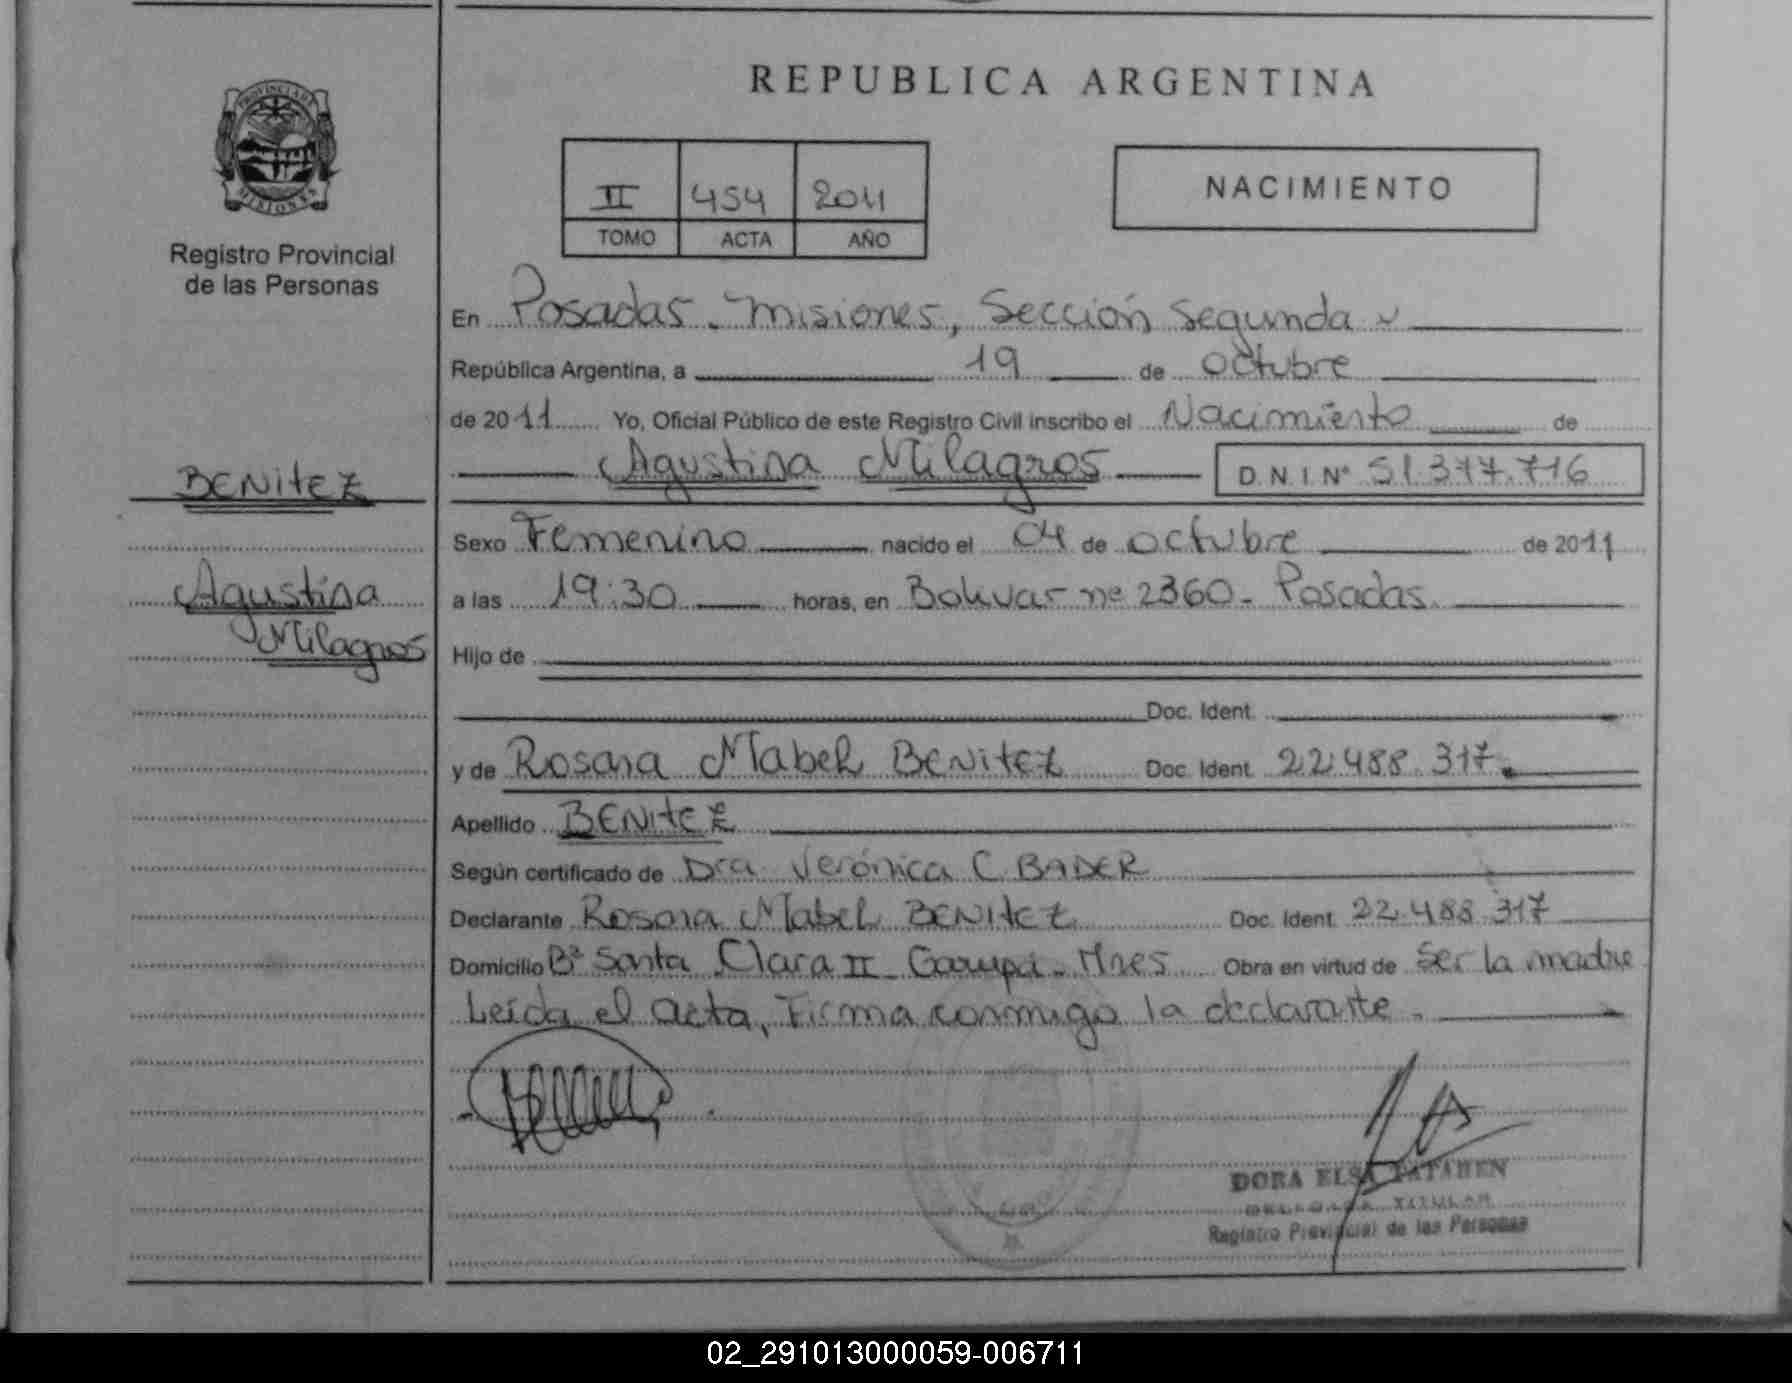 REPUBLICA ARGENTINA
PROVINCIA DE
MISIONES
Registro Provincial
de las Personas
II 454 2011
TOMO ACTA AÑO
NACIMIENTO
En Posadas. Misiones, Sección Segunda
República Argentina, a 19 de octubre
de 2011 Yo, Oficial Público de este Registro Civil inscribo el Nacimiento de
Agustina Milagros D.N.I. Nº 51.377.716
BENITEZ
Sexo Femenino nacido el 04 de octubre de 2011
Agustina
Milagros
a las 19:30 horas, en Bolivar nº 2360 - Posadas.
Hijo de
Doc. Ident.
y de Rosana Mabel BENITEZ Doc. Ident. 22.488.317.
Apellido BENITEZ
Según certificado de Dra. Verónica C. BADER
Declarante Rosana Mabel BENITEZ Doc. Ident. 22.488.317
Domicilio Bº Santa Clara II - Garupá - Mnes Obra en virtud de ser la madre
Leída el acta, Firma conmigo la declarante.
DORA ELSA
TITULAR
Registro Provincial de las Personas
02_291013000059-006711